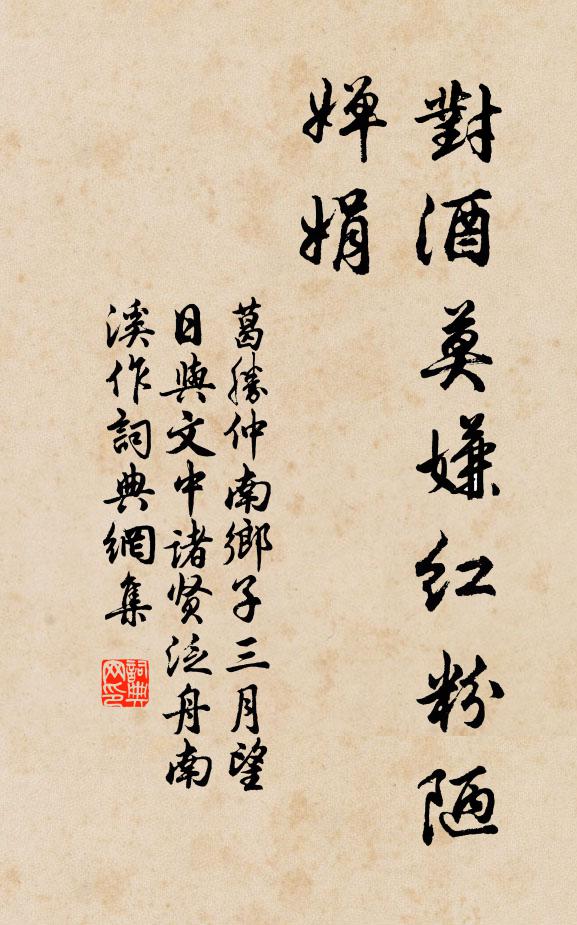 對酒莫嫌红粉陋
婵娟
葛勝仲南鄉子三月望
日與文中诸贤泛舟南
溪作詞典網集
詞典
网印